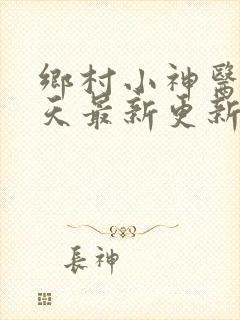 鄉村小神醫
天最新更新
長神